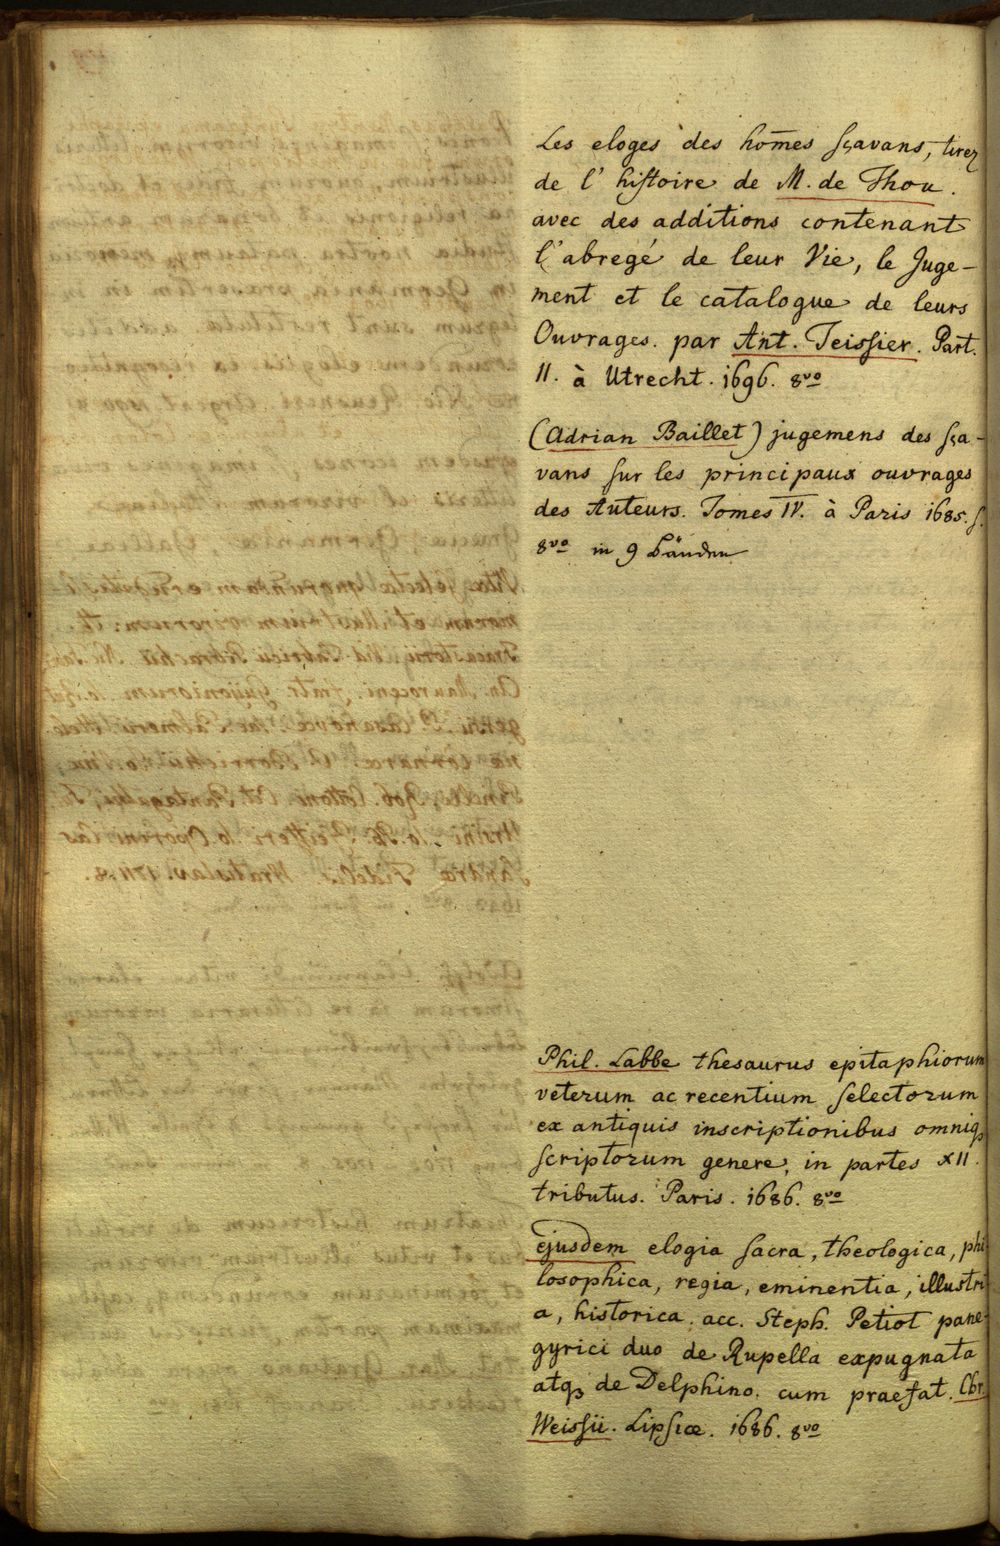 Les eloges des hom̄es sçavans, tirez
de l' histoire de M. de Thou.
avec des additions contenant
l'abregé de leur Vie, le Juge-
ment et le catalogue de leurs
Ouvrages. par Ant. Teissier. Part.
II. à Utrecht. 1696. 8vo
(Adrian Baillet) jugemens des sça-
vans sur les principaux ouvrages
des Auteurs. Tomes IV. à Paris 1685.
8vo in 9 Bänden
Phil. Labbe thesaurus epitaphiorum
veterum ac recentium selectorum
ex antiquis inscriptionibus omniq;
scriptorum genere, in partes XII.
tributus. Paris. 1686. 8vo
ejusdem elogia sacra, theologica, phi
losophica, regia, eminentia, illustri
a, historica. acc. Steph. Petiot pane-
gyrici duo de Rupella expugnata
atq; de Delphino. cum praefat. Chr.
Weissii. Lipsiæ. 1686. 8vo